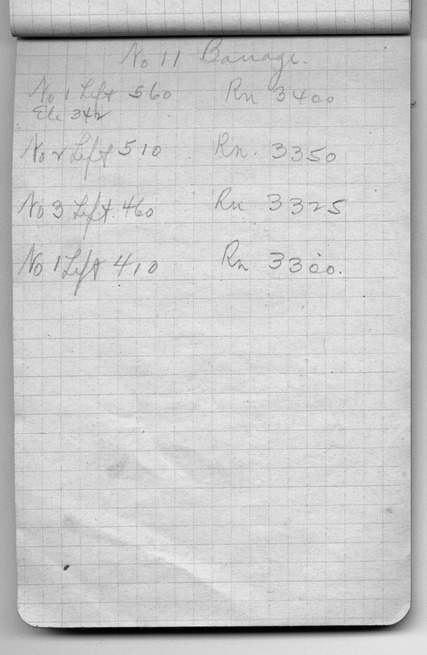 No 11 Barrage.
No 1 Left 560 Rn 3400
Ele 342
No 2 Left 510 Rn. 3350
No 3 Left. 460 Rn 3325
No 1 Left 410 Rn 3300.